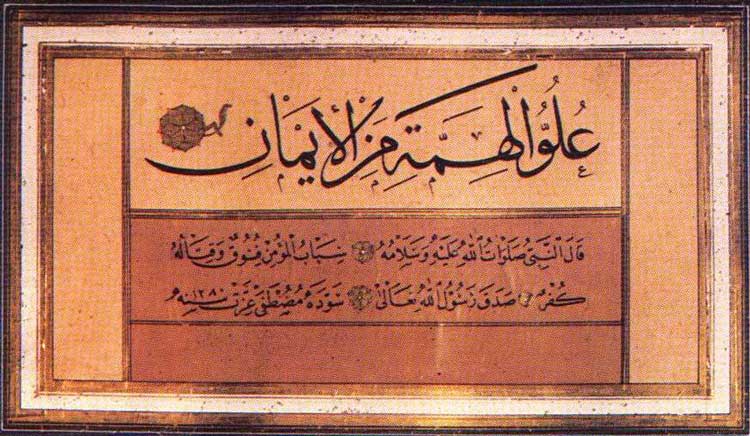 عُلُوُّ الْهِمَّةِ مِنَ الْأِيمَانِ
قَالَ النَّبِيُّ صَلَوَاتُ اللّٰهِ عَلَيْهِ وَسَلَامُهُ سِبَابُ الْمُؤْمِنِ فُسُوقٌ وَقِتَالُهُ
كُفْرٌ صَدَقَ رَسُولُ اللّٰهِ تَعَالَى سَوَّدَهُ مُصْطَفَى عِزَّت سنه ١٢٨٠